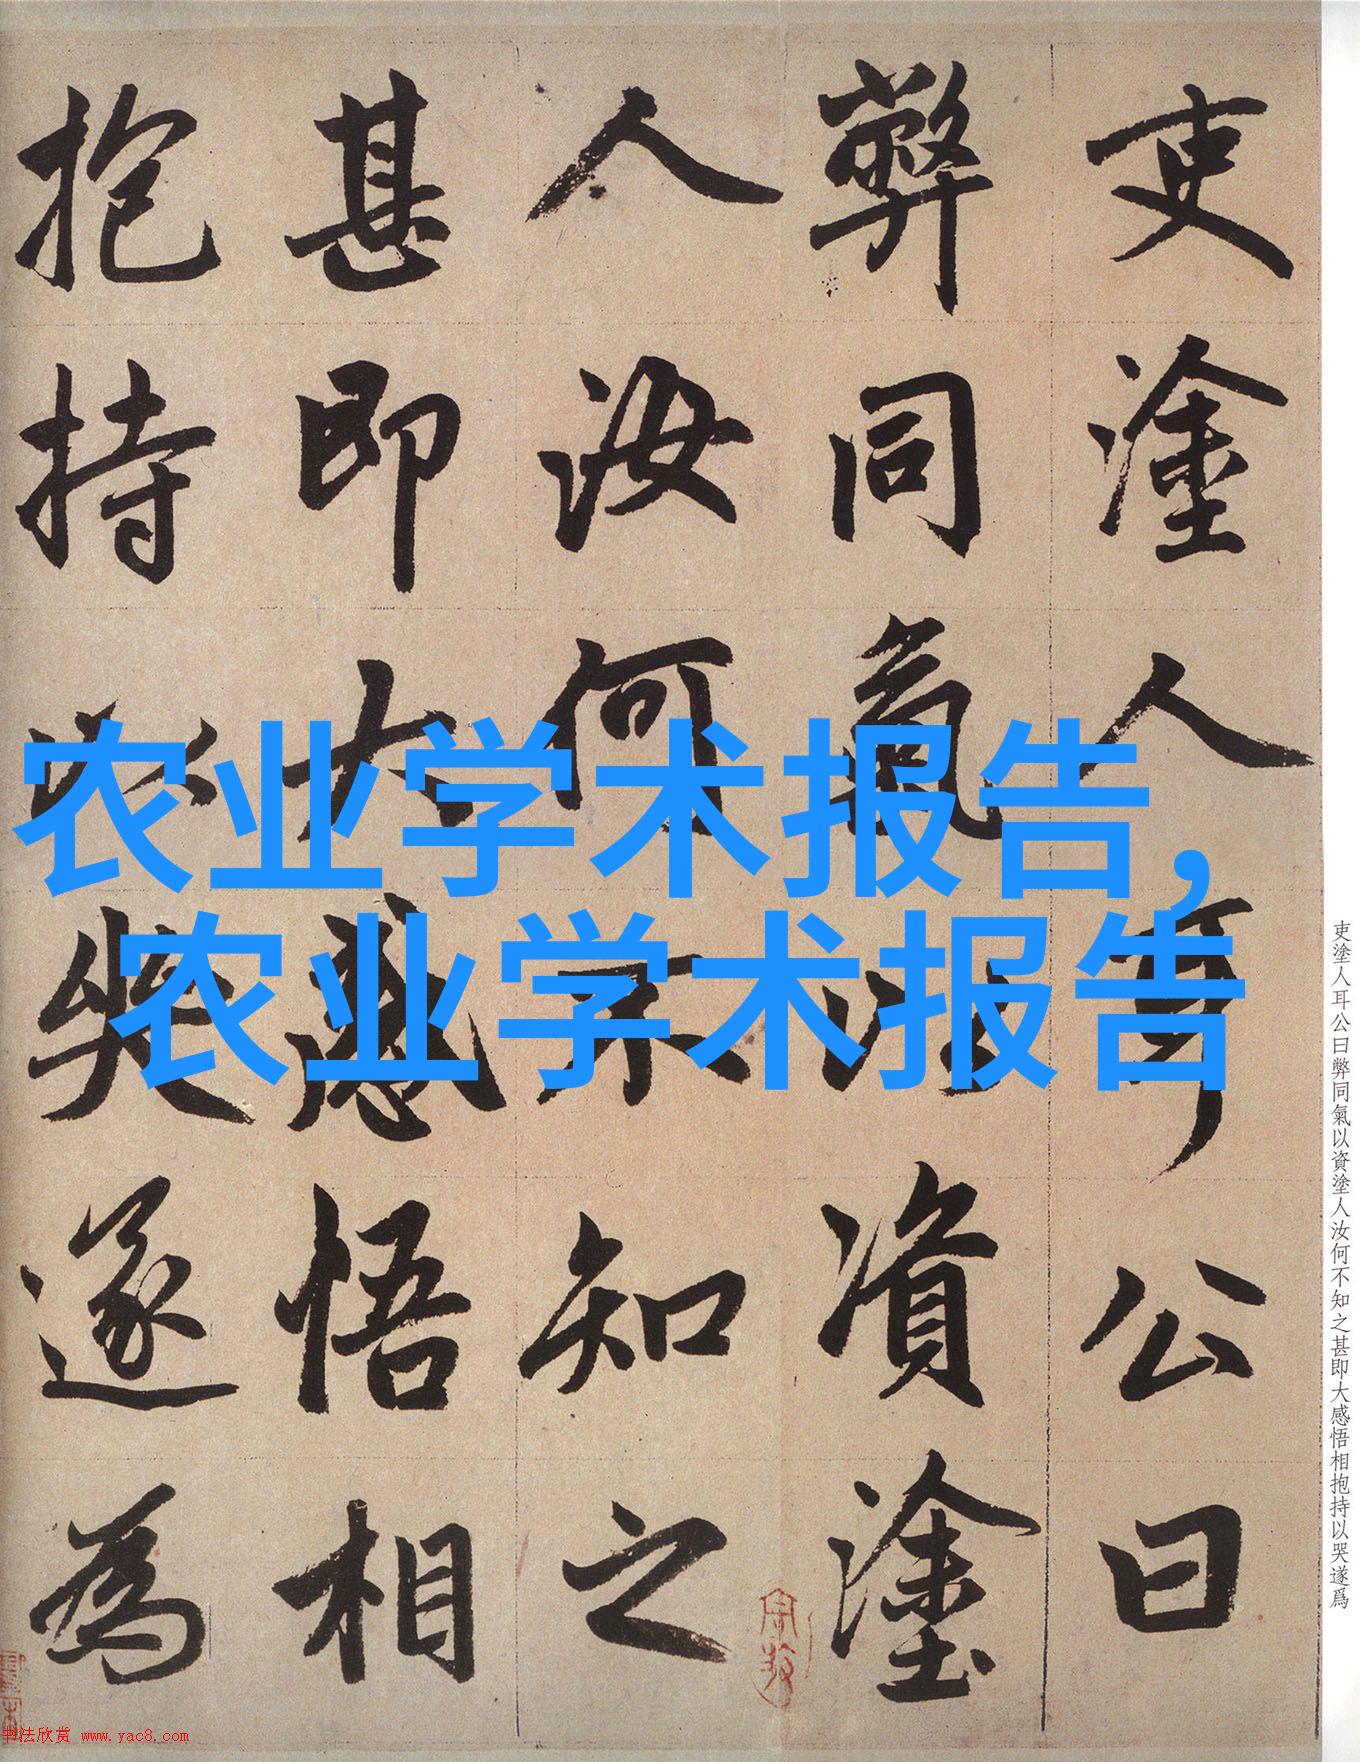 农业学术报告,
农业学术报告
吏塗人耳公曰
弊同氣以資塗
人汝何不知之
甚即大感悟相
抱持以哭遂為
吏塗人耳公曰弊同氣以資塗人汝何不知之甚即大感悟相抱持以哭遂爲
书法欣赏 www.yac8.com